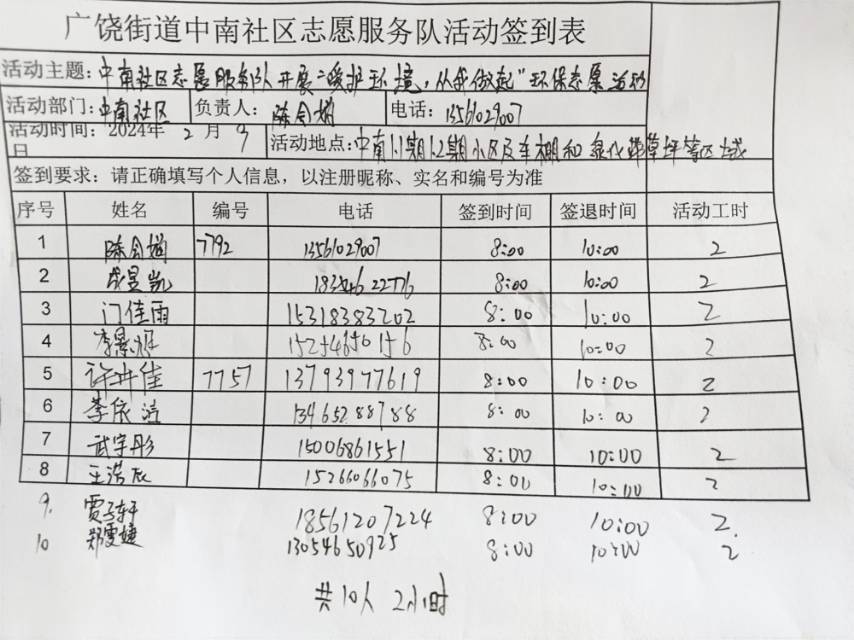 广饶街道中南社区志愿服务队活动签到表
活动主题：中南社区志愿服务队开展"暖护环境，从我做起"环保志愿活动
活动部门：中南社区 负责人：陈会娟 电话：13561029007
活动时间：2024年 2 月 9 日 活动地点：中南1.1期1.2期小区及车棚和 草坪等区域
签到要求：请正确填写个人信息，以注册昵称、实名和编号为准
序号 姓名 编号 电话 签到时间 签退时间 活动工时
1 陈会娟 7792 13561029007 8:00 10:00 2
2 成昱凯 8:00 10:00 2
3 门佳雨 15318383202 8:00 10:00 2
4 李景 15254650156 8:00 10:00 2
5 许井佳 7757 13793977619 8:00 10:00 2
6 李依 13465288788 8:00 10:00 2
7 武宇彤 15006861551 8:00 10:00 2
8 王浩辰 15266066075 8:00 10:00 2
9. 贾子轩 18561207224 8:00 10:00 2.
10 郑雯婕 13054650925 8:00 10:00 2
共10人 2小时